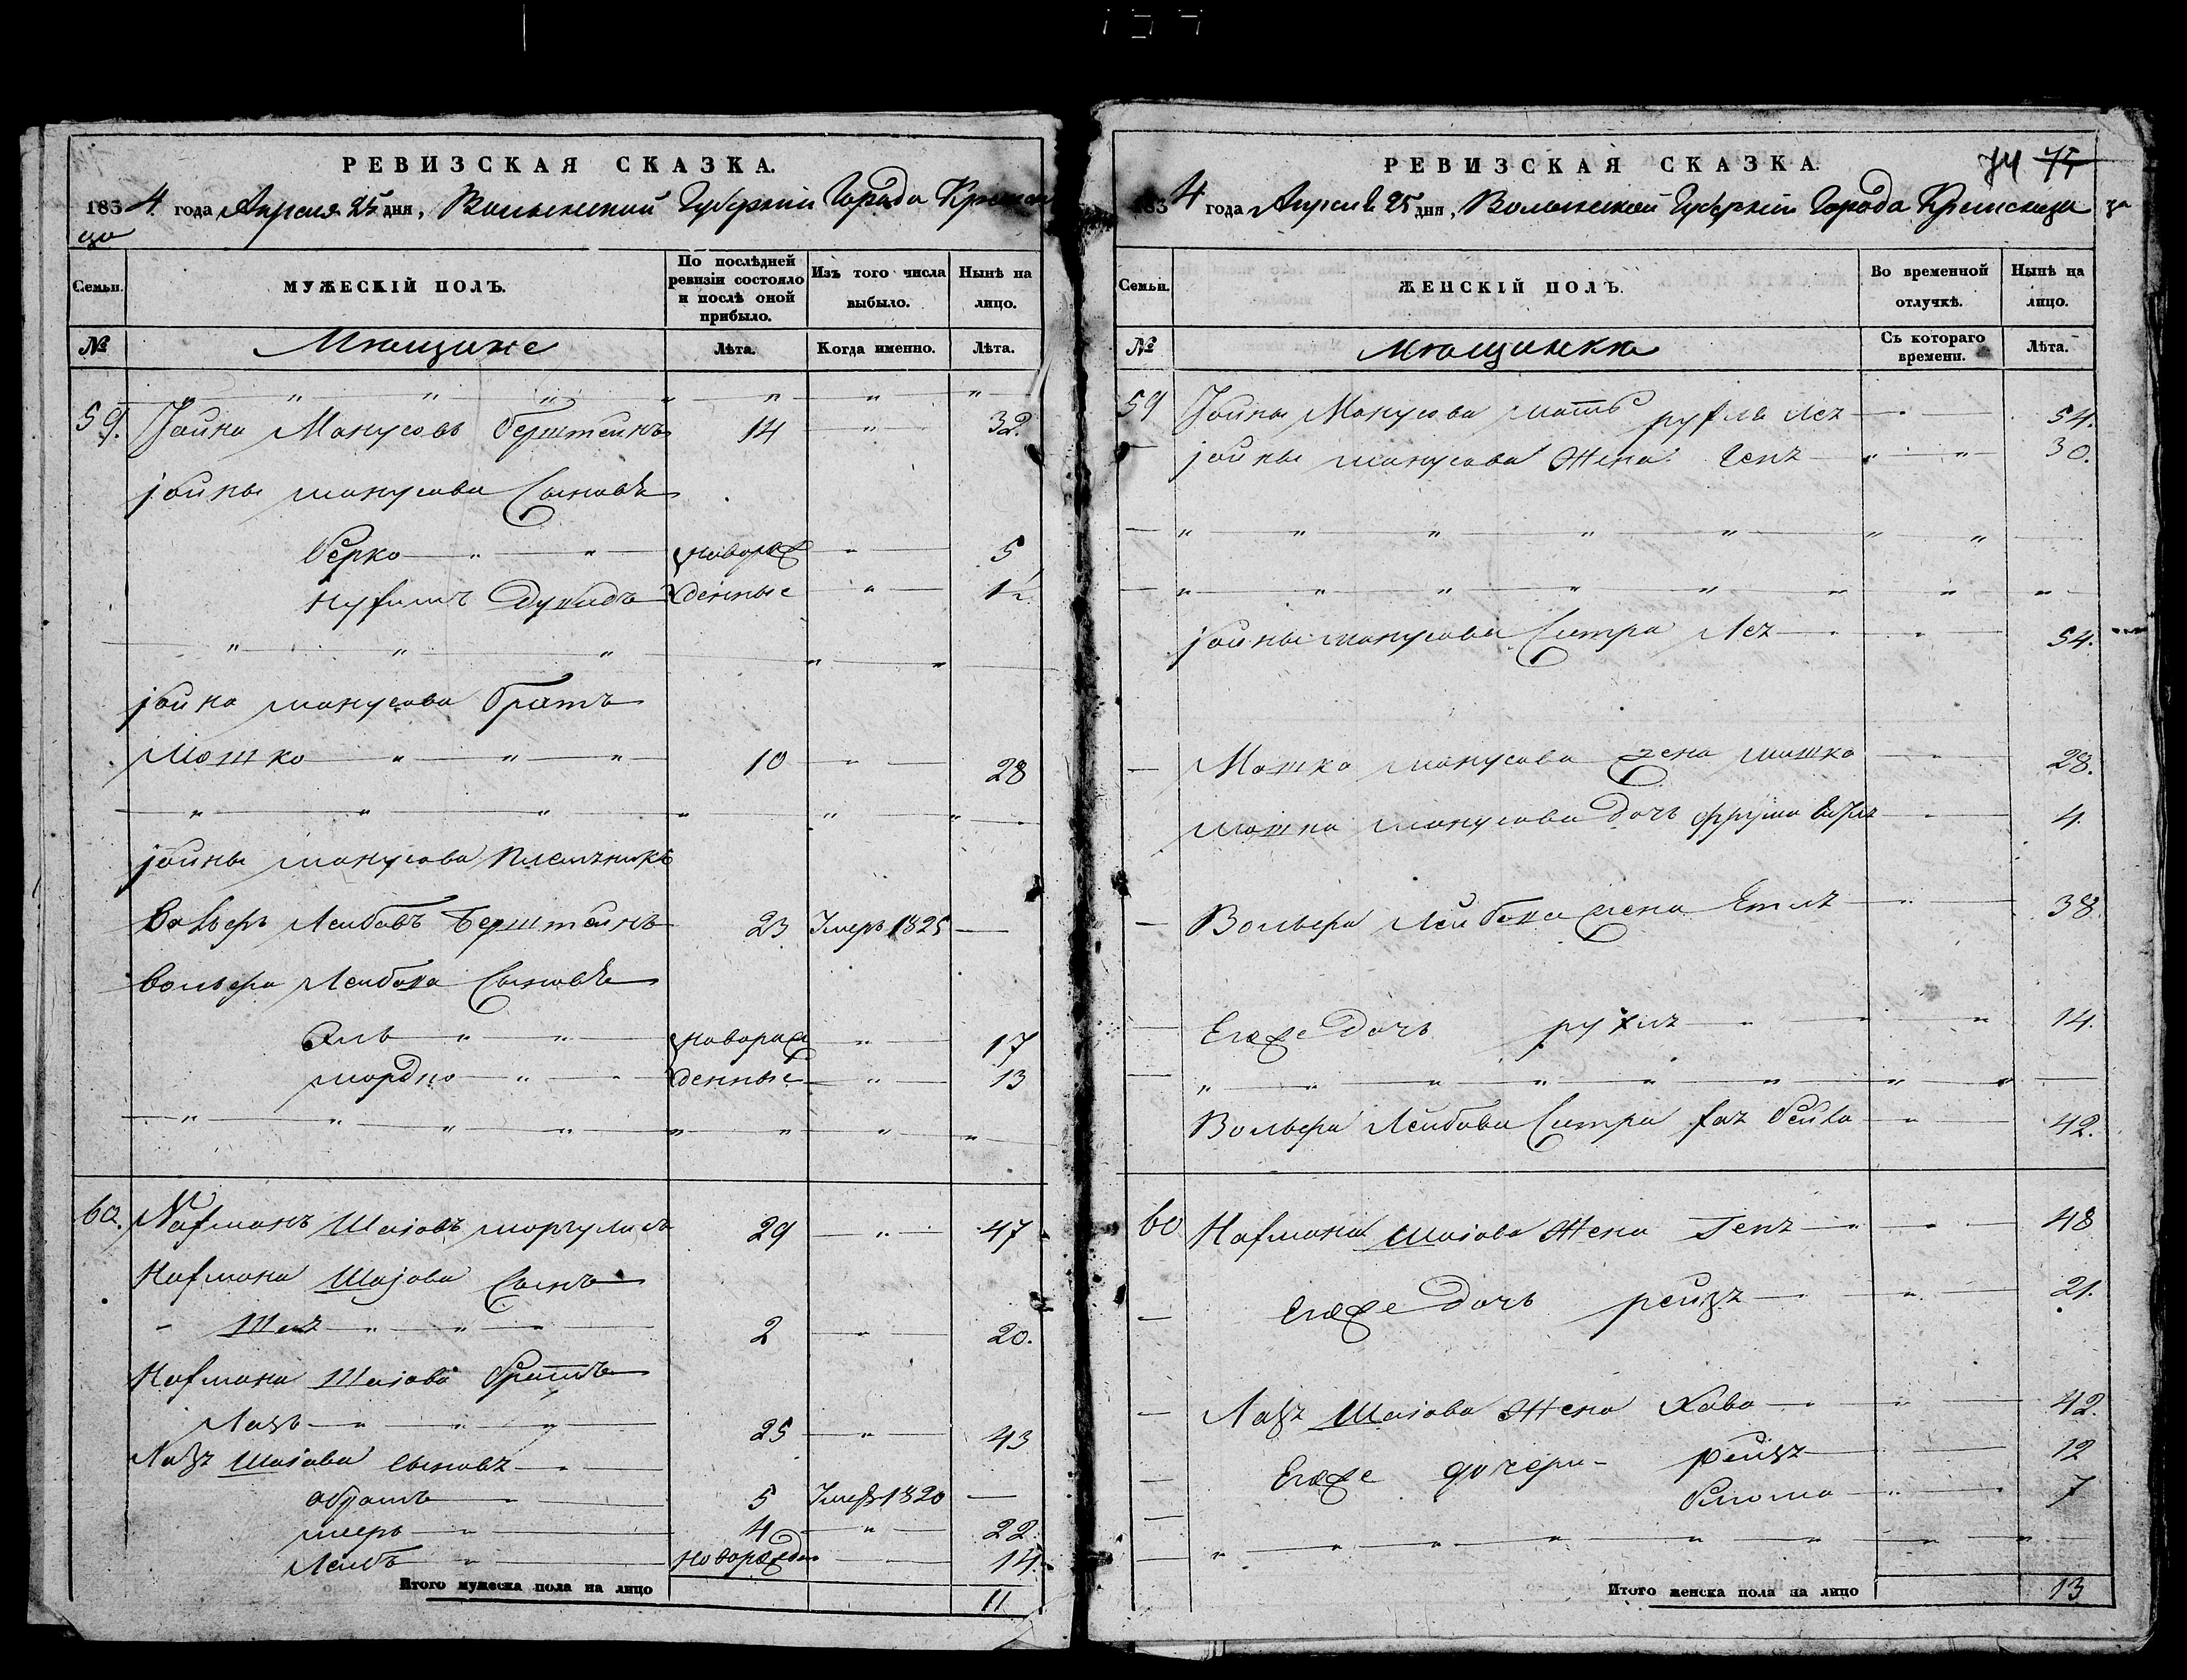 РЕВИЗСКАЯ СКАЗКА.
1834 года Апреля 25 дня, Волынской Губернiи Города Кременца
Семьи.
МУЖЕСКIЙ ПОЛЪ.
По послѣдней ревизiи состояло и послѣ оной прибыло.
Изъ того числа выбыло.
Нынѣ на лицо.
№
Мѣщане
Лѣта.
Когда именно.
Лѣта.
59. Iойна Манусовъ Берштейнъ 14 32.
Iойны Манусова Сыновья
Берко новорож 5
Нухимъ Дувидъ денные 1½
Iойна Манусова братъ
Мошко 10 28
Iойны Манусова племянникъ
Вольфъ Лейбовъ Берштейнъ 23 Умеръ 1825
Вольфа Лейбова Сыновья
Эль новорож 17
Мордко денные 13
60. Нафманъ Шаiовъ Моргулисъ 29 47
Нафмана Шаiова Сынъ
2 20.
Нафмана Шаiова братъ
Лазъ 25 43
Лазъ Шаiова сыновья
Абрамъ 5 Умеръ 1820
Меръ 4 22
Лейбъ новорожден 14.
Итого мужеска пола на лицо 11
РЕВИЗСКАЯ СКАЗКА.
74 75
1834 года Апреля 25 дня, Волынской Губернiи Города Кременца
Семьи.
ЖЕНСКIЙ ПОЛЪ.
Во временной отлучкѣ.
Нынѣ на лицо.
№
Мѣщанки
Съ котораго времени.
Лѣта.
59 Iойны Манусова мать Руфля Лея 54.
Iойны Манусова Жена Геня 30.
Iойны Манусова Систра Лея 54.
Мошка Манусова жена 28.
Мошка Манусова дочь Фрума 4.
Вольфа Лейбова жена Етля 38
Егоже дочь Рухля 14.
Вольфа Лейбова Систра Хая Бейла 42.
60 Нафмана Шаiова Жена Геня 48
Егоже дочь Рейзя 21.
Лазя Шаiова Жена Хава 42.
Егоже дочери Рейзя 12
Блюма 7
Итого женска пола на лицо 13